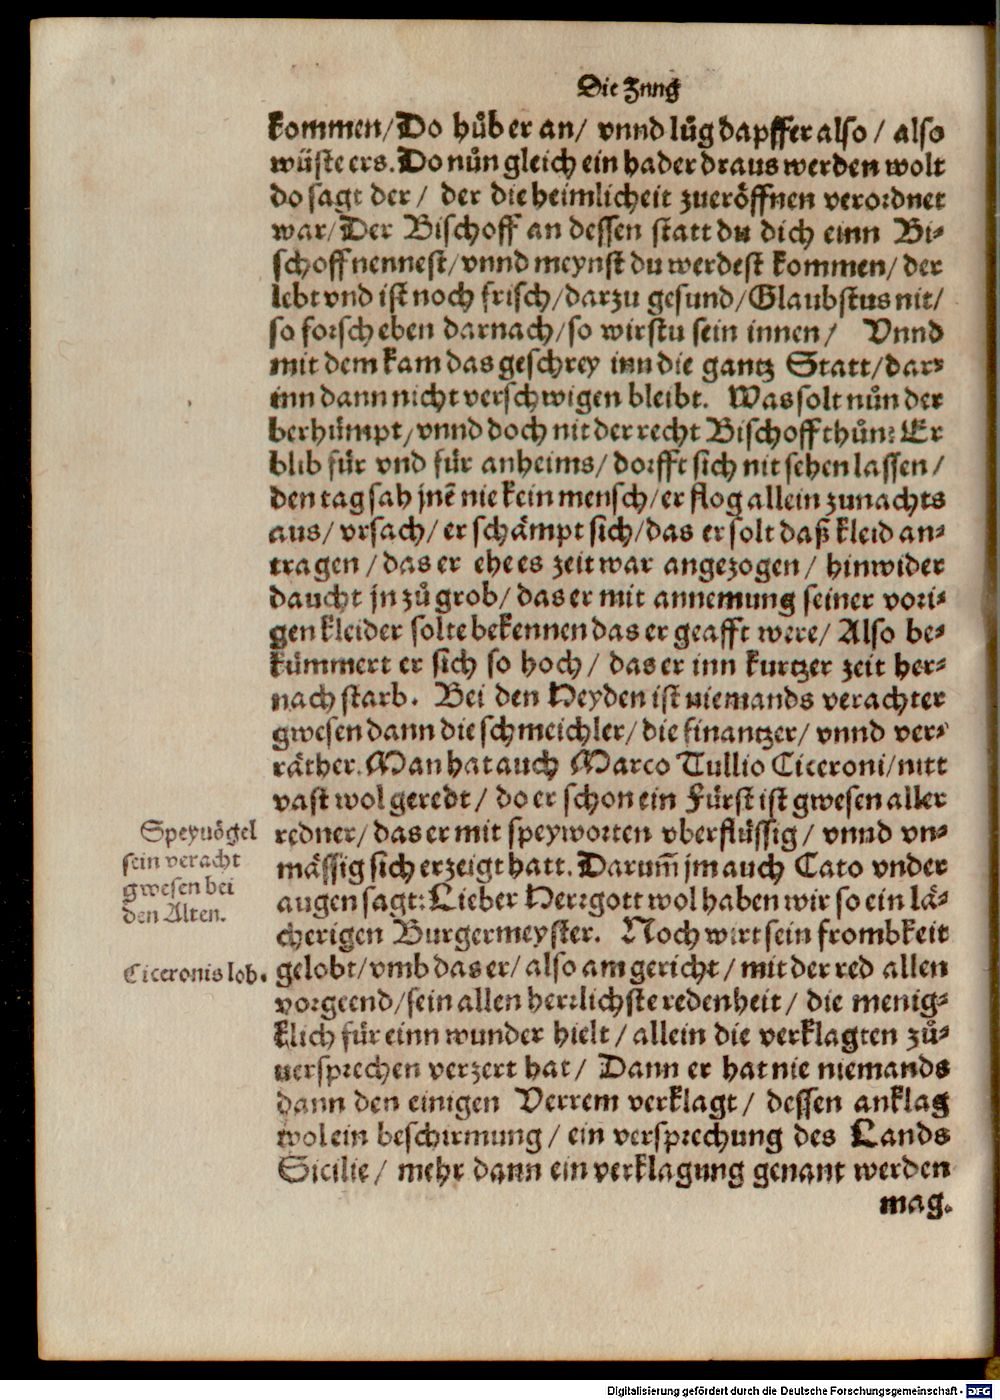 Die Zung
kommen/Do hůb er an/ vnnd lůg dapffer also / also
wüste ers. Do nůn gleich ein hader draus werden wolt
do sagt der / der die heimlicheit zueröffnen verordnet
war/Der Bischoff an dessen statt du dich einn Bi-
schoff nennest/vnnd meynst du werdest kommen/ der
lebt vnd ist noch frisch/darzu gesund/Glaubstus nit/
so forsch eben darnach/so wirstu sein innen / Vnnd
mit dem kam das geschrey inn die gantz Statt/dar-
inn dann nicht verschwigen bleibt. Was solt nůn der
berhümpt/vnnd doch nit der recht Bischoff thůn? Er
blib für vnd für anheims/ dorfft sich nit sehen lassen /
den tag sah jnē nie kein mensch/er flog allein zunachts
aus/ vrsach/ er schämpt sich/das er solt daß kleid an-
tragen /das er ehe es zeit war angezogen / hinwider
daucht jn zů grob/ das er mit annemung seiner vori-
gen kleider solte bekennen das er geafft were/ Also be-
kümmert er sich so hoch / das er inn kurtzer zeit her-
nach starb. Bei den Heyden ist niemands verachter
gwesen dann die schmeichler/ die finantzer/ vnnd ver-
räther. Man hat auch Marco Tullio Ciceroni/nitt
vast wol geredt / do er schon ein Fürst ist gwesen aller
redner/das er mit speyworten vberflüssig / vnnd vn-
mässig sich erzeigt hatt. Darum̃ jm auch Cato vnder
augen sagt: Lieber Herrgott wol haben wir so ein lä-
cherigen Burgermeyster. Noch wirt sein frombkeit
gelobt/vmb das er/ also am gericht / mit der red allen
vorgeend/sein allen herrlichste redenheit / die menig-
klich für einn wunder hielt / allein die verklagten zů-
uersprechen verzert hat/ Dann er hat nie niemands
dann den einigen Verrem verklagt / dessen anklag
wol ein beschirmung / ein versprechung des Lands
Sicilie / mehr dann ein verklagung genant werden
mag.
Speyuögel
sein veracht
gwesen bei
den Alten.
Ciceronis lob.
Digitalisierung gefördert durch die Deutsche Forschungsgemeinschaft - DFG